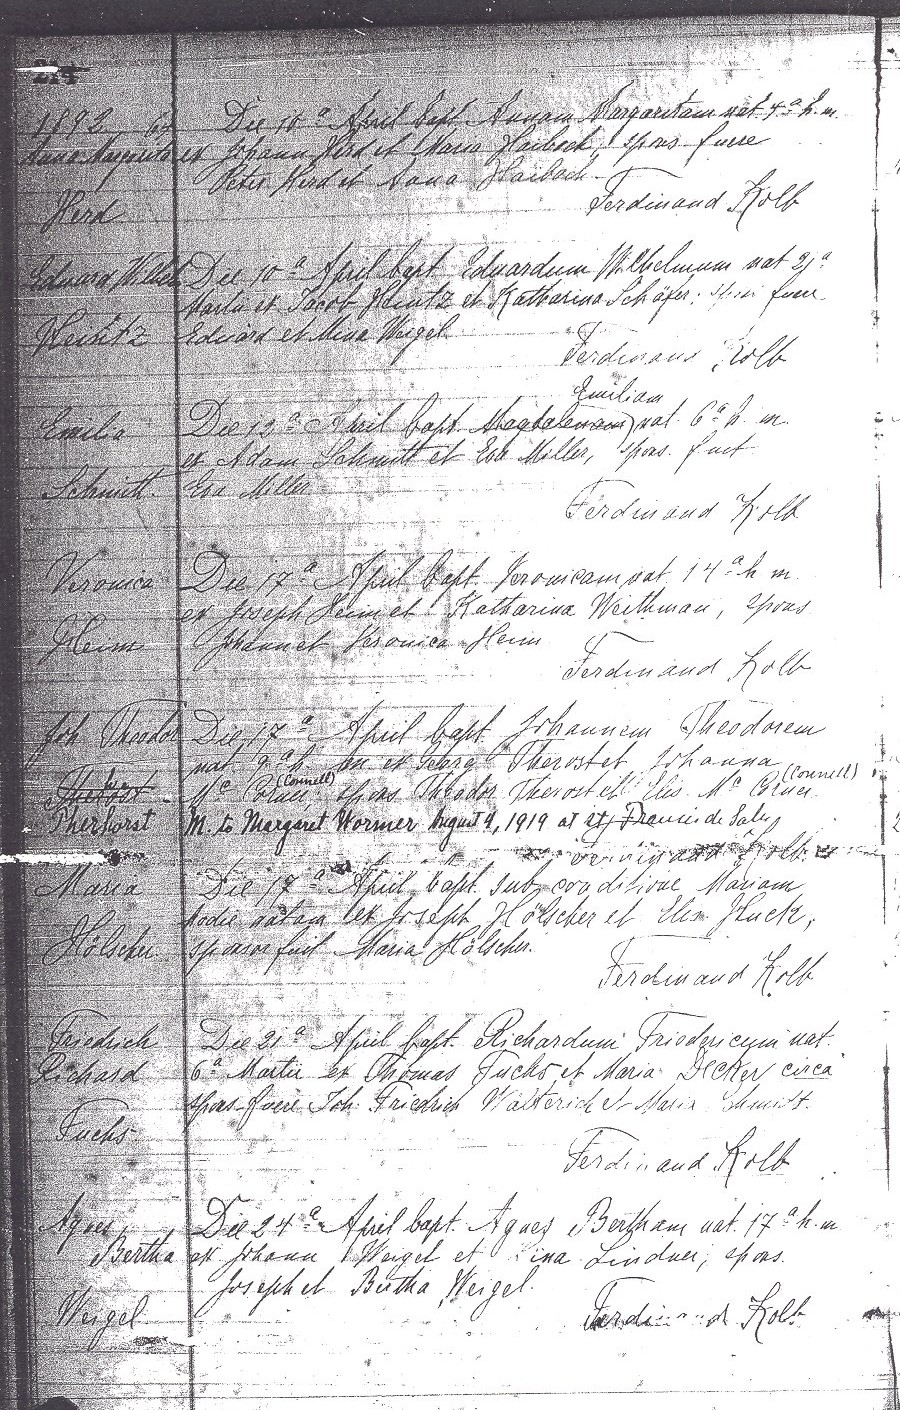 1892
Die 10ª April bapt. Annam Margaritam nat 4ª h. m.
Anna Margarita ex Johann Herd et Maria Haibach, spons fuere
Peter Herd et Anna Haibach.
Herd Ferdinand Kolb
Eduard Wilhelm Die 10ª April bapt. Eduardum Wilhelmum nat 21ª
Martii ex Jacob Heintz et Katharina Schäfer; spon fuere
Heintz Eduard et Mina Weigel
Ferdinand Kolb
Emiliam
Emilia Die 12ª April bapt. Magdalenam nat. 6ª h. m.
ex Adam Schmitt et Eva Miller, spons. fuit
Schmitt. Eva Miller
Ferdinand Kolb
Veronica Die 17ª April bapt. Veronicam nat. 14ª h. m.
ex Joseph Heim et Katharina Weithman, spons
Heim Johann et Veronica Heim
Ferdinand Kolb
Joh. Theodor Die 17ª April bapt Johannem Theodorem
nat 9ª h. m ex Georg Therost et Johanna
(Connell) (Connell)
Mc spons Theodor Therost et Elis. Mc
Therhorst M. to Margaret Wormer August 9, 1919 at St Francis de Sales
Ferdinand Kolb.
Maria Die 17ª April bapt. sub conditione Mariam
hodie natam ex Joseph Hölscher et Elis. Kluck;
Hölscher. sponsor fuit Maria Hölscher.
Ferdinand Kolb
Friedrich Die 21ª April bapt. Richardum Friedericum nat.
Richard 6ª Martii ex Thomas Fuchs et Maria Decker circa
spons fuere Joh. Friedrich Walterich et Maria Schmidt.
Fuchs.
Ferdinand Kolb
Agnes Die 24ª April bapt. Agnes Bertham nat. 17ª h. m
Bertha ex Johann Weigel et Lindner, spons.
Joseph et Bertha Weigel.
Weigel Ferdinand Kolb